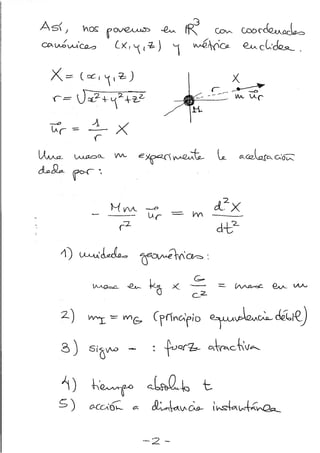 Así, nos ponemos en ℝ³ con coordenadas
canónicas (x, y, z) y métrica euclídea.
X = (x, y, z)
r = √x²+y²+z²
u⃗r = 1/r X
X
r
m u⃗r
M
Una masa m experimenta la aceleración
dada por:
- Mm/r² u⃗r = m d²X/dt²
1) unidades geométricas:
masa en kg × G/c² = masa en m
2) mI = mG (principio equivalencia débil)
3) signo - : fuerza atractiva
4) tiempo absoluto t
5) acción a distancia instantánea
-2-